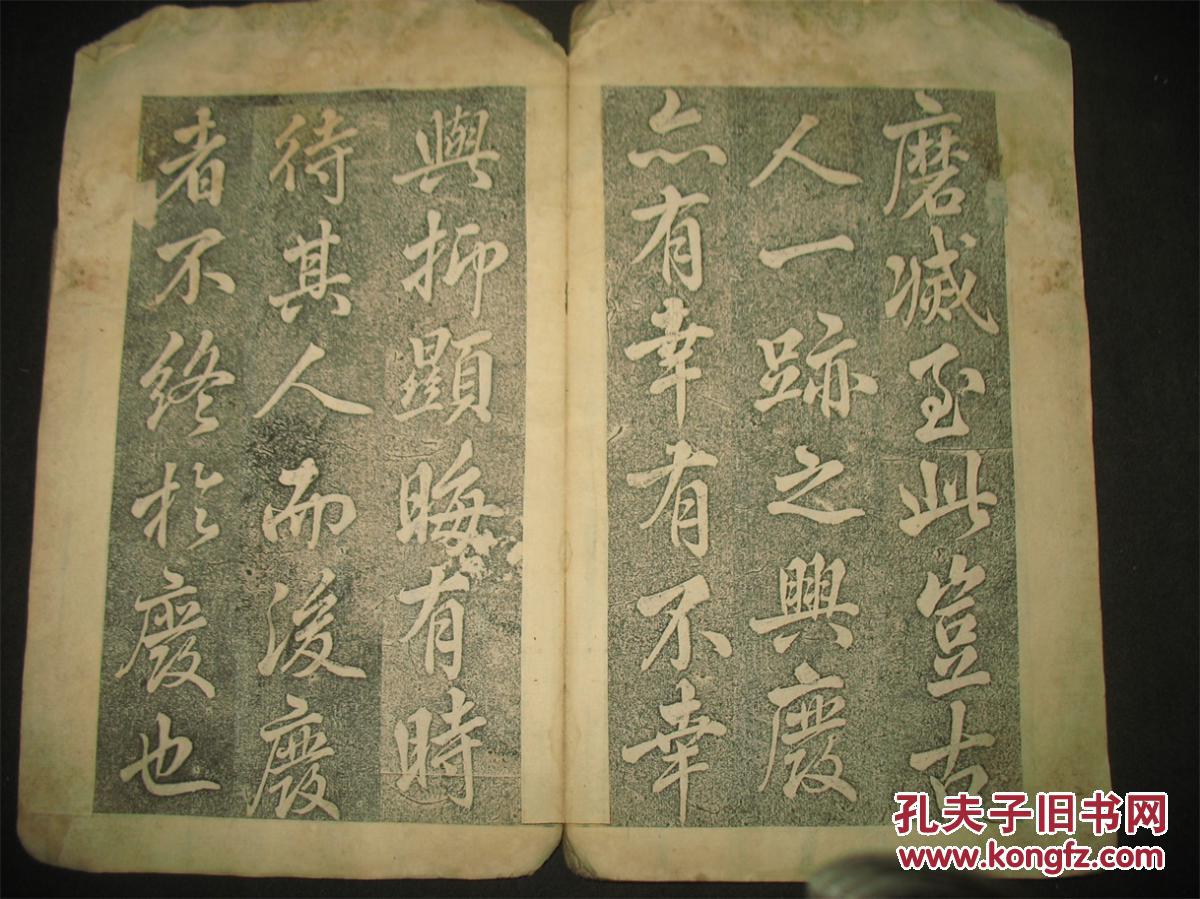 磨滅至此豈古
人一跡之興廢
亦有幸有不幸
與抑顯晦有時
待其人而後廢
者不終於廢也
孔夫子旧书网
www.kongfz.com